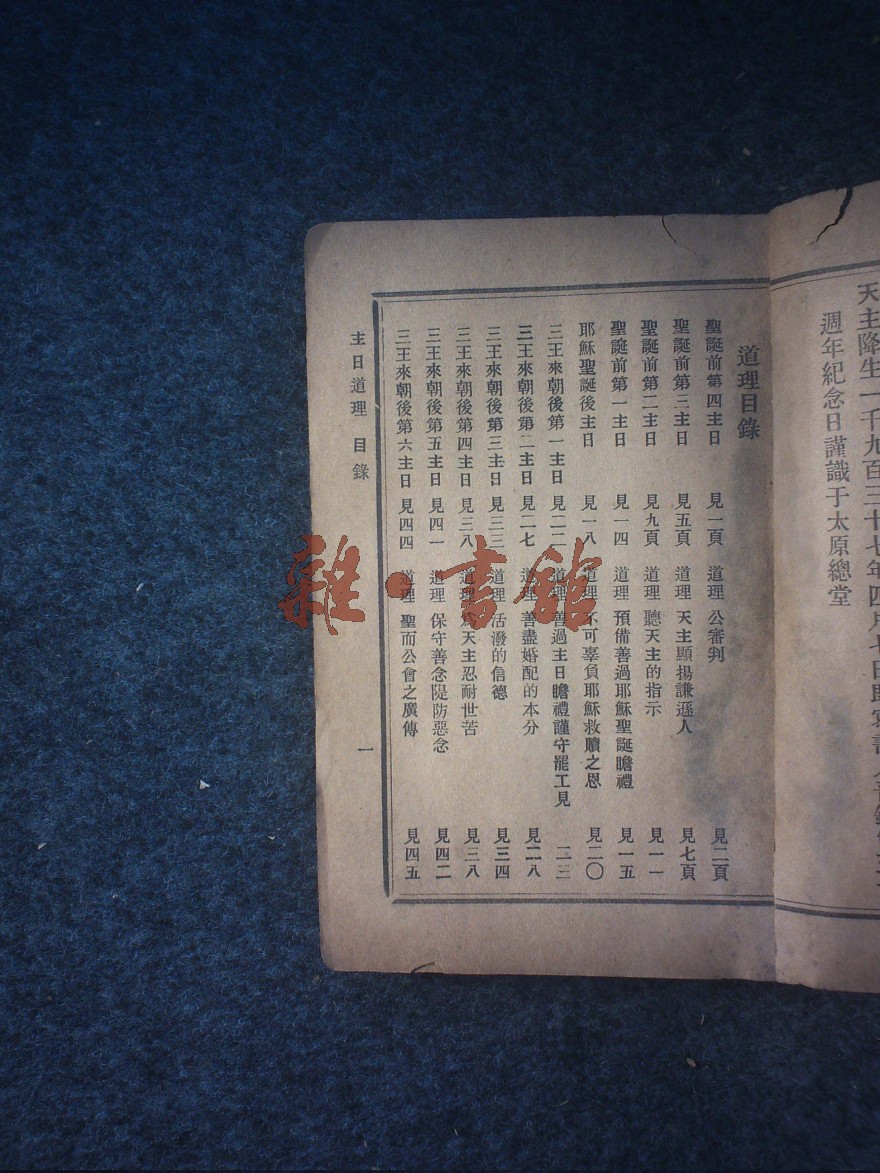 天主降生一千九百三十七年四月七日
週年紀念日謹識于太原總堂
道理目錄
聖誕前第四主日 見一頁 道理 公審判 見二頁
聖誕前第三主日 見五頁 道理 天主顯揚謙遜人 見七頁
聖誕前第二主日 見九頁 道理 聽天主的指示 見一一
聖誕前第一主日 見一四 道理 預備善過耶穌聖誕瞻禮 見一五
耶穌聖誕後主日 見一八 道理 不可辜負耶穌救贖之恩 見二〇
三王來朝後第一主日 見二二 道理 善過主日瞻禮謹守罷工見 二三
三王來朝後第二主日 見二七 道理 善盡婚配的本分 見二八
三王來朝後第三主日 見三三 道理 活潑的信德 見三四
三王來朝後第四主日 見三八 道理 為天主忍耐世苦 見三八
三王來朝後第五主日 見四一 道理 保守善念隄防惡念 見四二
三王來朝後第六主日 見四四 道理 聖而公會之廣傳 見四五
主日道理 目錄 一
雜·書館